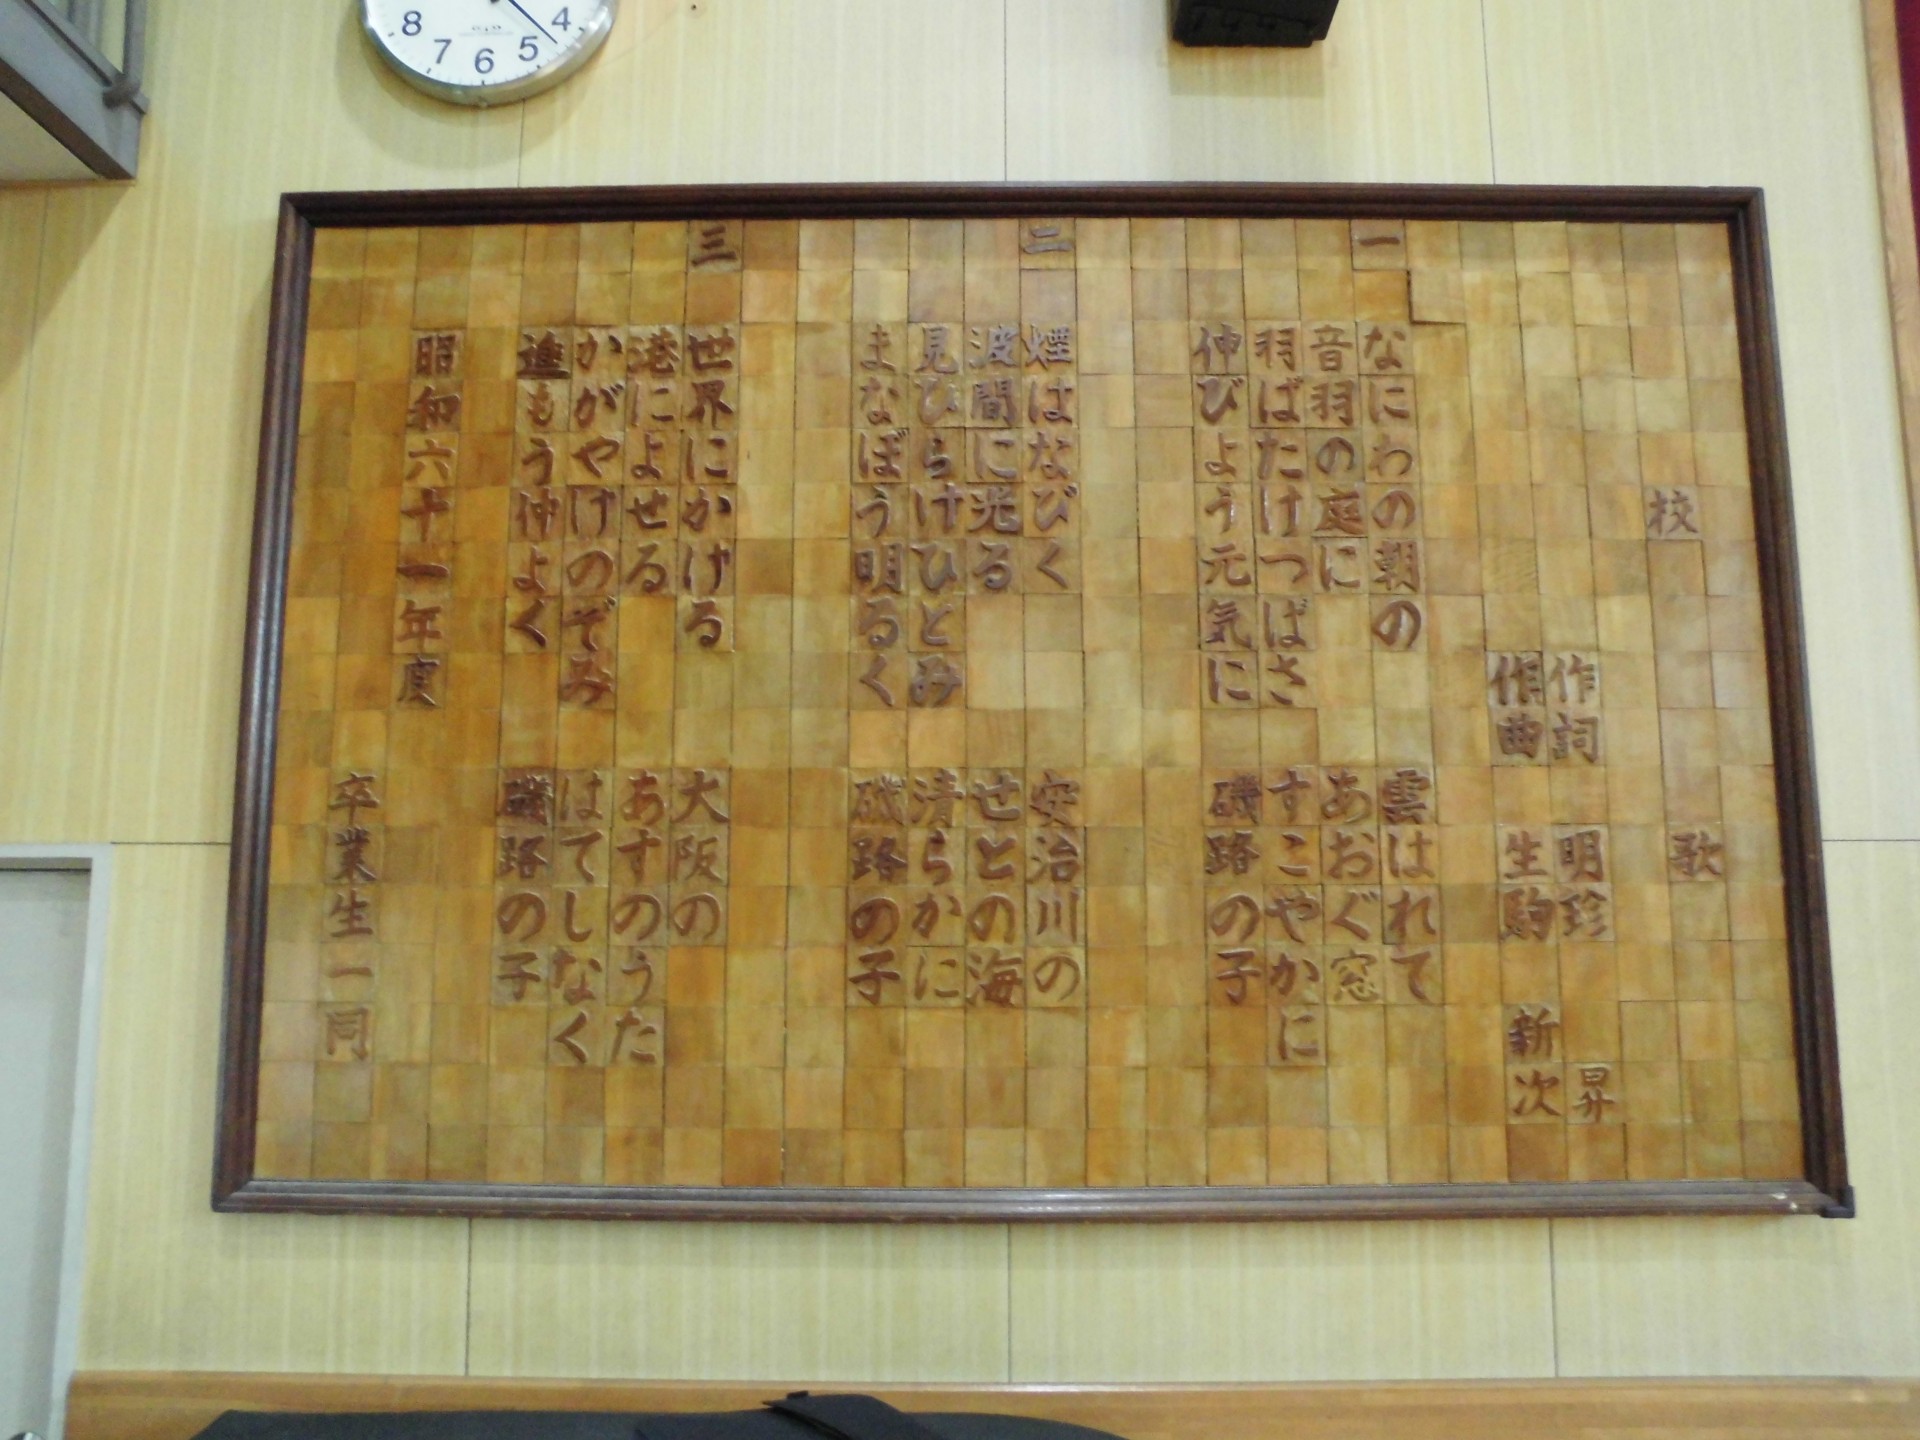 校歌
作詞 明珍 昇
作曲 生駒 新次
一
なにわの朝の 雲はれて
音羽の庭に あおぐ窓
羽ばたけつばさ すこやかに
伸びよう元気に 磯路の子
二
煙はなびく 安治川の
波間に光る せとの海
見ひらけひとみ 清らかに
まなぼう明るく 磯路の子
三
世界にかける 大阪の
港によせる あすのうた
かがやけのぞみ はてしなく
進もう仲よく 磯路の子
昭和六十一年度
卒業生一同
8 7 6 5 4